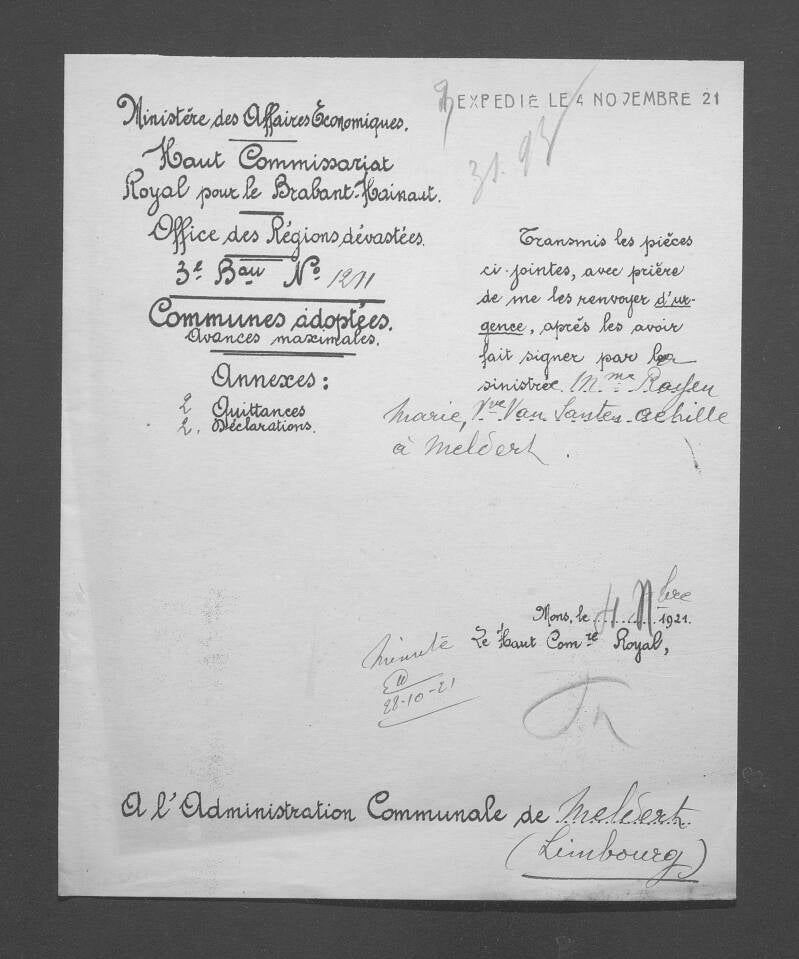 EXPEDIE LE 4 NOVEMBRE 21
31.93
Ministère des Affaires Économiques.
Haut Commissariat
Royal pour le Brabant-Hainaut.
Office des Régions dévastées.
3e Bau No 1211
Communes adoptées.
Avances maximales.
Annexes:
2 Quittances
2. Déclarations.
Transmis les pièces
ci-jointes, avec prière
de me les renvoyer d'ur-
gence, après les avoir
fait signer par la
sinistrée. Mme
Marie, Vve Van Santen Achille
à Meldert.
Mons, le 4 Nbre 1921.
Le Haut Comre Royal,
minute
28-10-21
A l'Administration Communale de Meldert
(Limbourg)